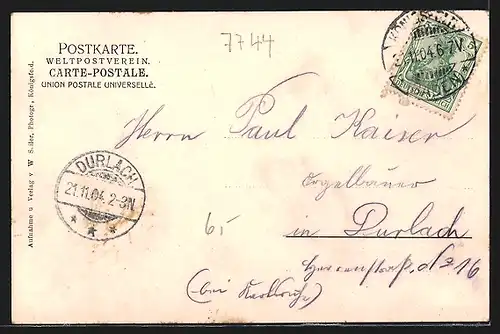 POSTKARTE.
WELTPOSTVEREIN.
CARTE-POSTALE.
UNION POSTALE UNIVERSELLE.
7744
04. 6-7V.
Aufnahme u Verlag v W Seiler, Photogr., Königsfeld.
Herrn Paul Kaiser
Orgelbauer
in Durlach
(bei Karlsruhe)
16
6,-
DURLACH
21.11.04. 2-3N.